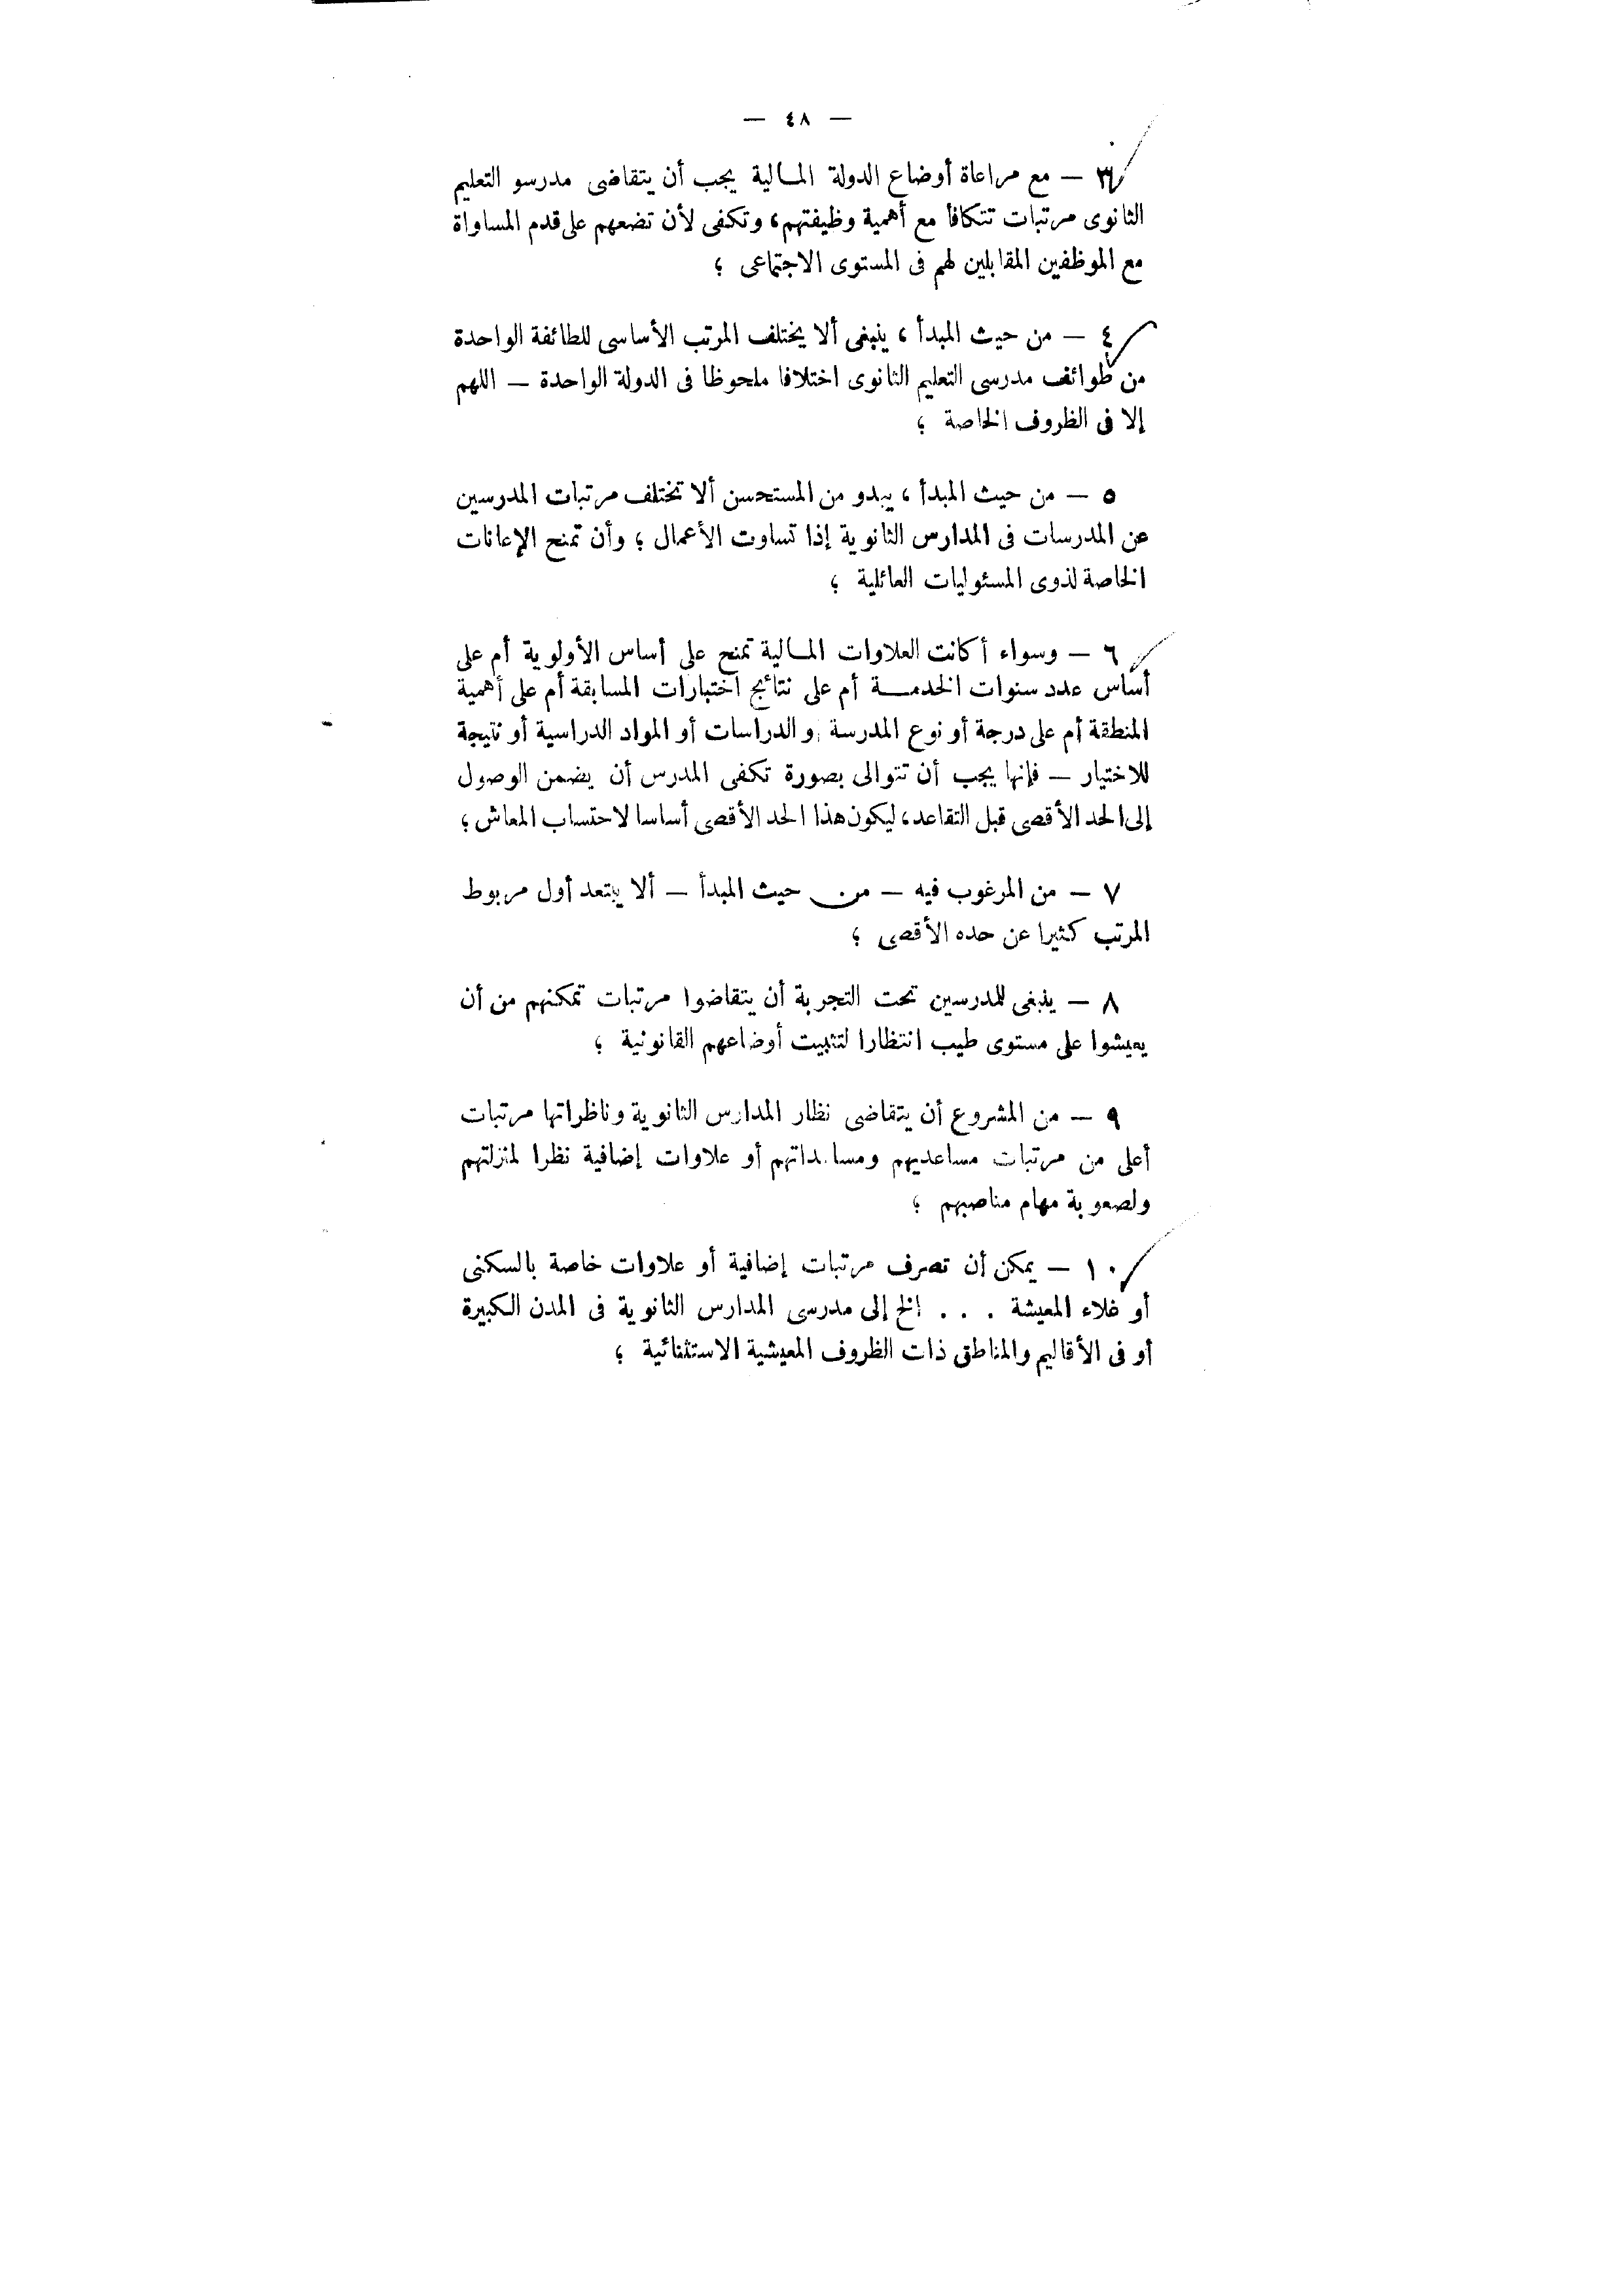 — ٤٨ —
٣ — مع مراعاة أوضاع الدولة المالية يجب أن يتقاضى مدرسو التعليم
الثانوى مرتبات تتكافأ مع أهمية وظيفتهم، وتكفى لأن تضعهم على قدم المساواة
مع الموظفين المقابلين لهم فى المستوى الاجتماعى ؛
٤ — من حيث المبدأ ، ينبغى ألا يختلف المرتب الأساسى للطائفة الواحدة
من طوائف مدرسى التعليم الثانوى اختلافا ملحوظا فى الدولة الواحدة — اللهم
إلا فى الظروف الخاصة ؛
٥ — من حيث المبدأ ، يبدو من المستحسن ألا تختلف مرتبات المدرسين
عن المدرسات فى المدارس الثانوية إذا تساوت الأعمال ؛ وأن تمنح الإعانات
الخاصة لذوى المسئوليات العائلية ؛
٦ — وسواء أكانت العلاوات المالية تمنح على أساس الأولوية أم على
أساس عدد سنوات الخدمة أم على نتائج اختبارات المسابقة أم على أهمية
المنطقة أم على درجة أو نوع المدرسة والدراسات أو المواد الدراسية أو نتيجة
للاختيار — فإنها يجب أن تتوالى بصورة تكفى المدرس أن يضمن الوصول
إلى الحد الأقصى قبل التقاعد، ليكون هذا الحد الأقصى أساسا لاحتساب المعاش ؛
٧ — من المرغوب فيه — من حيث المبدأ — ألا يبتعد أول مربوط
المرتب كثيرا عن حده الأقصى ؛
٨ — ينبغى للمدرسين تحت التجربة أن يتقاضوا مرتبات تمكنهم من أن
يعيشوا على مستوى طيب انتظارا لتثبيت أوضاعهم القانونية ؛
٩ — من المشروع أن يتقاضى نظار المدارس الثانوية وناظراتها مرتبات
أعلى من مرتبات مساعديهم ومساعداتهم أو علاوات إضافية نظرا لمنزلتهم
ولصعوبة مهام مناصبهم ؛
١٠ — يمكن أن تصرف مرتبات إضافية أو علاوات خاصة بالسكنى
أو غلاء المعيشة . . . الخ إلى مدرسى المدارس الثانوية فى المدن الكبيرة
أو فى الأقاليم والمناطق ذات الظروف المعيشية الاستثنائية ؛